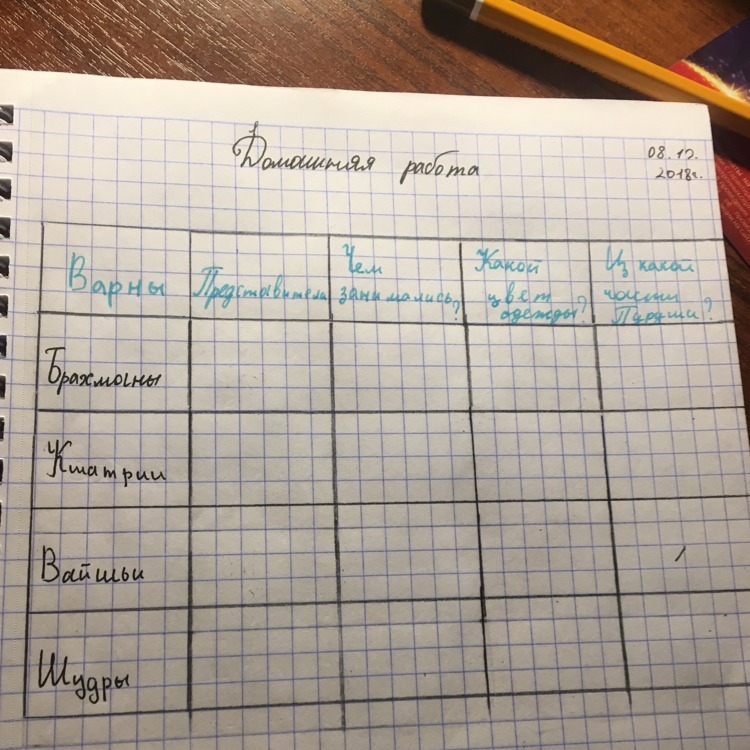 Домашняя работа
08.12.
2018г.
Варны
Представители
Чем
занимались?
Какой
цвет
одежды?
Из какой
части
Пуруши?
Брахманы
Кшатрии
Вайшьи
Шудры